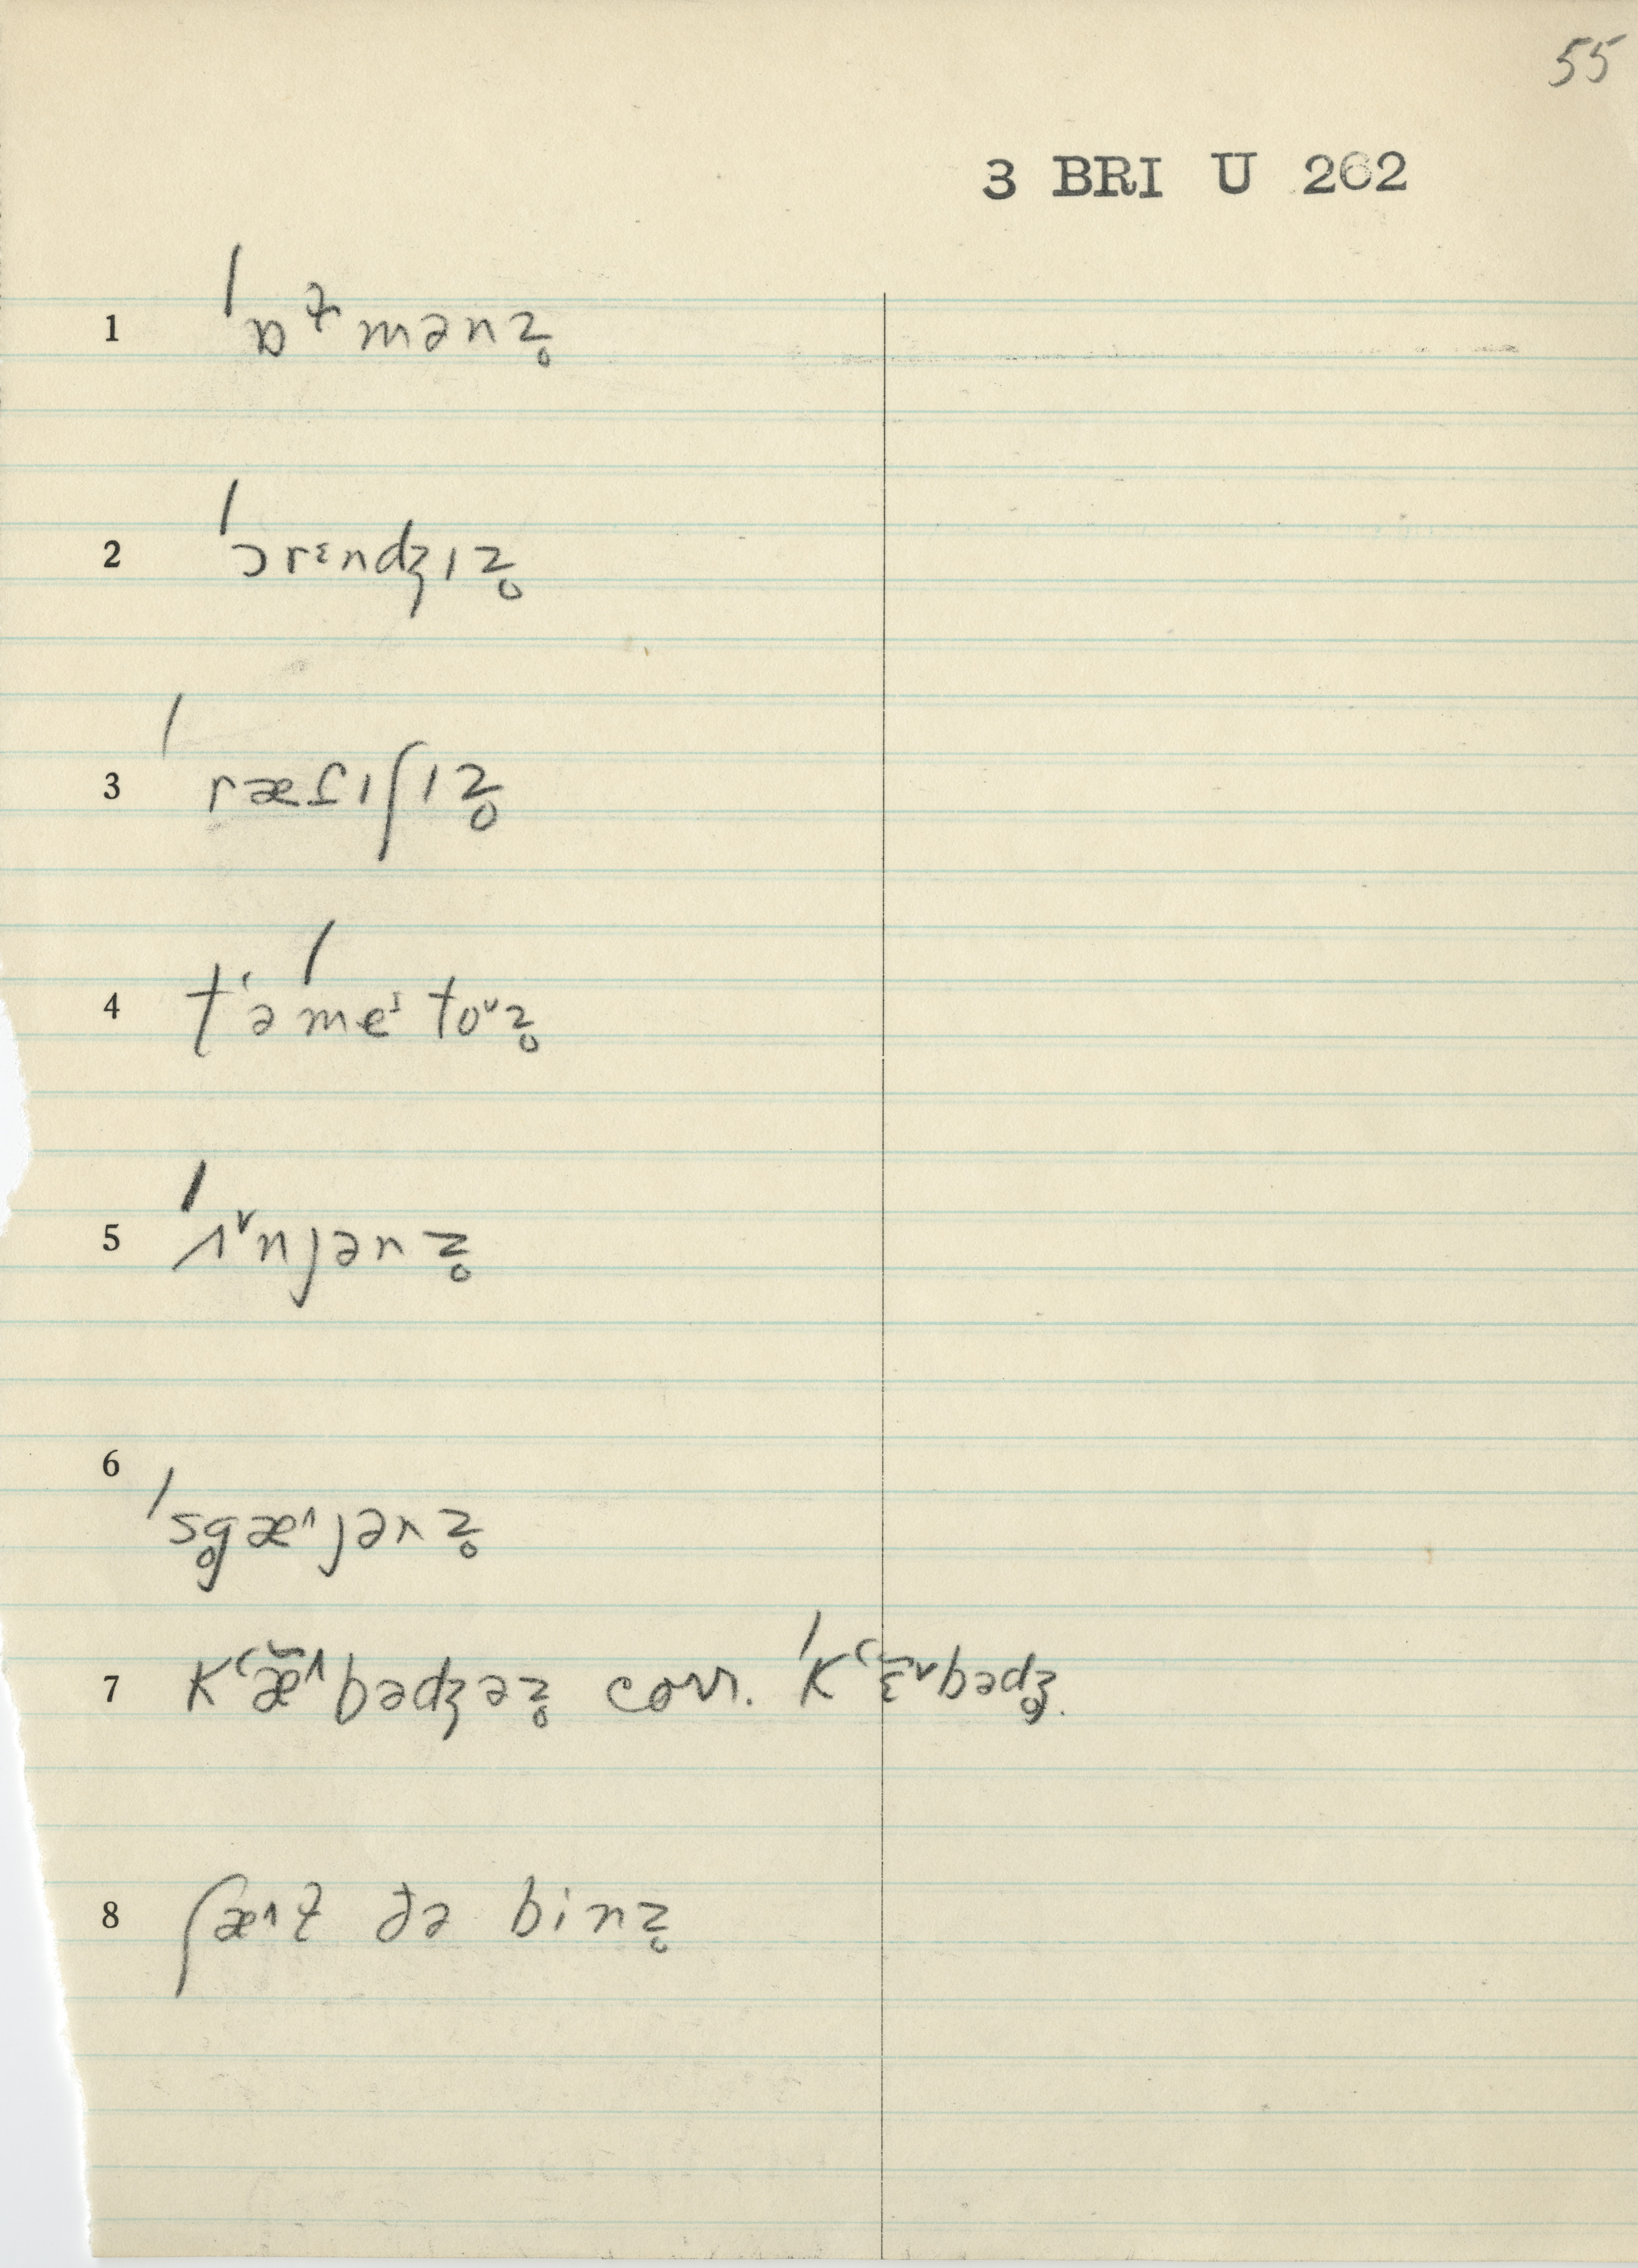 55
3 BRI U 262
1 ˈɒɫmənz̥
2 ˈɔrᵋndʒɪz̥
3 ˈræfɪʃɪz̥
4 tʻəˈmeᶦtoᶷz̥
5 ˈʌ˅njənz̥
6 ˈsg̥æ˄jənz̥
7 kʻæ̆˄bədʒəz̥ corr. ˈkʻɛ̆˅bədʒ̥.
8 ʃæ˄ɫ ðə binz̥